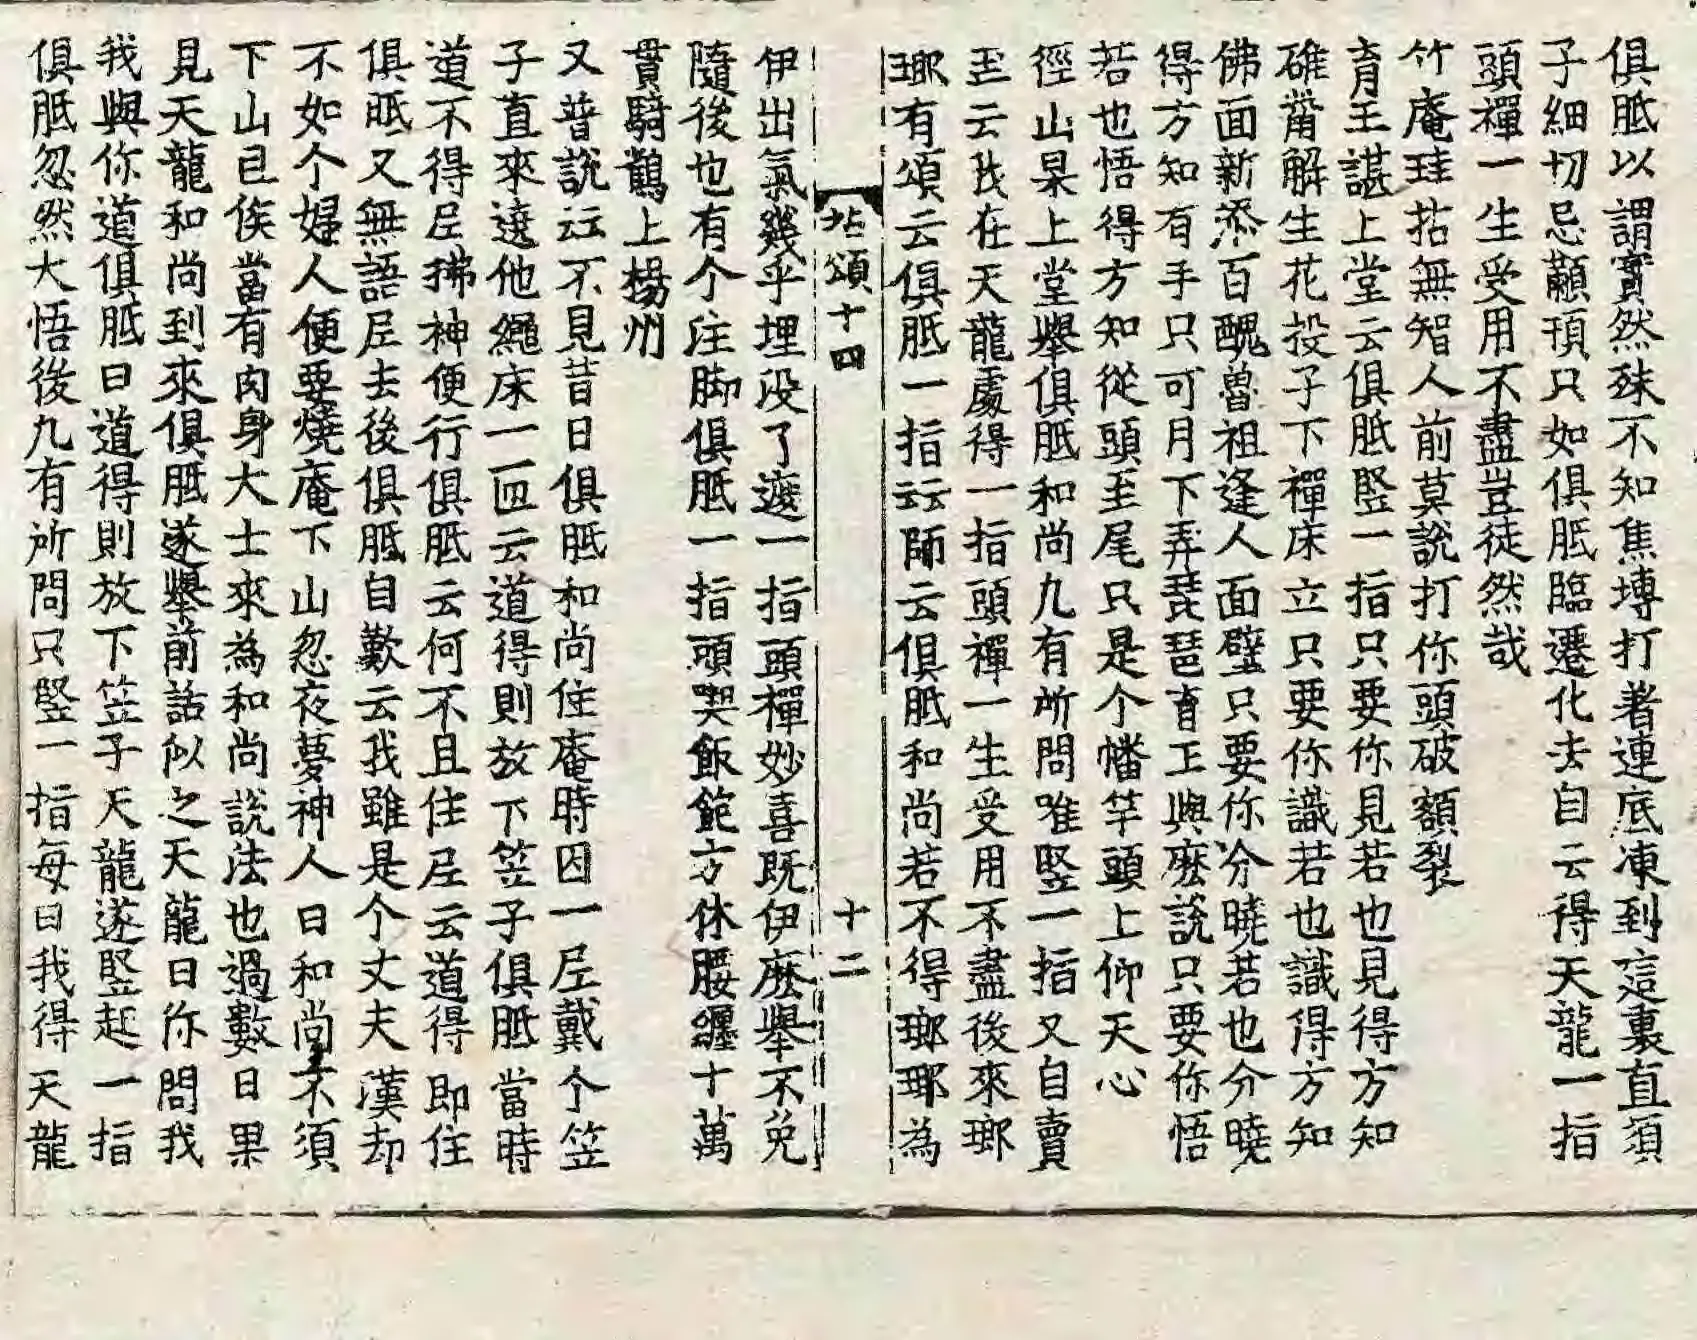 俱胝以謂實然殊不知焦塼打著連底凍到這裏直須
子細切忌顢頇只如俱胝臨遷化去自云得天龍一指
頭禪一生受用不盡豈徒然哉
竹庵珪拈無智人前莫說打你頭破額裂
育王諶上堂云俱胝竪一指只要你見若也見得方知
碓觜解生花投子下禪床立只要你識若也識得方知
佛面新添百醜魯祖逢人面壁只要你分曉若也分曉
得方知有手只可月下弄琵琶育王與麽說只要你悟
若也悟得方知從頭至尾只是个幡竿頭上仰天心
徑山杲上堂舉俱胝和尚凢有所問唯竪一指又自賣
至云我在天龍處得一指頭禪一生受用不盡後來瑯
瑘有頌云俱胝一指云云師云俱胝和尚若不得瑯瑘為
拈頌十四 十二
伊出氣幾乎埋没了遮一指頭禪妙喜旣伊麽舉不免
隨後也有个注脚俱胝一指頭喫飯飽方休腰纏十萬
貫騎鶴上楊州
又普說云不見昔日俱胝和尚住庵時因一尼戴个笠
子直來遶他繩床一匝云道得則放下笠子俱胝當時
道不得尼拂袖便行俱胝云何不且住尼云道得即住
俱胝又無語尼去後俱胝自歎云我雖是个丈夫漢却
不如个婦人便要燒庵下山忽夜夢神人日和尚不須
下山已俟當有肉身大士來為和尚說法也過數日果
見天龍和尚到來俱胝遂舉前話似之天龍日你問我
我與你道俱胝日道得則放下笠子天龍遂竪起一指
俱胝忽然大悟後凢有所問只竪一指每日我得天龍